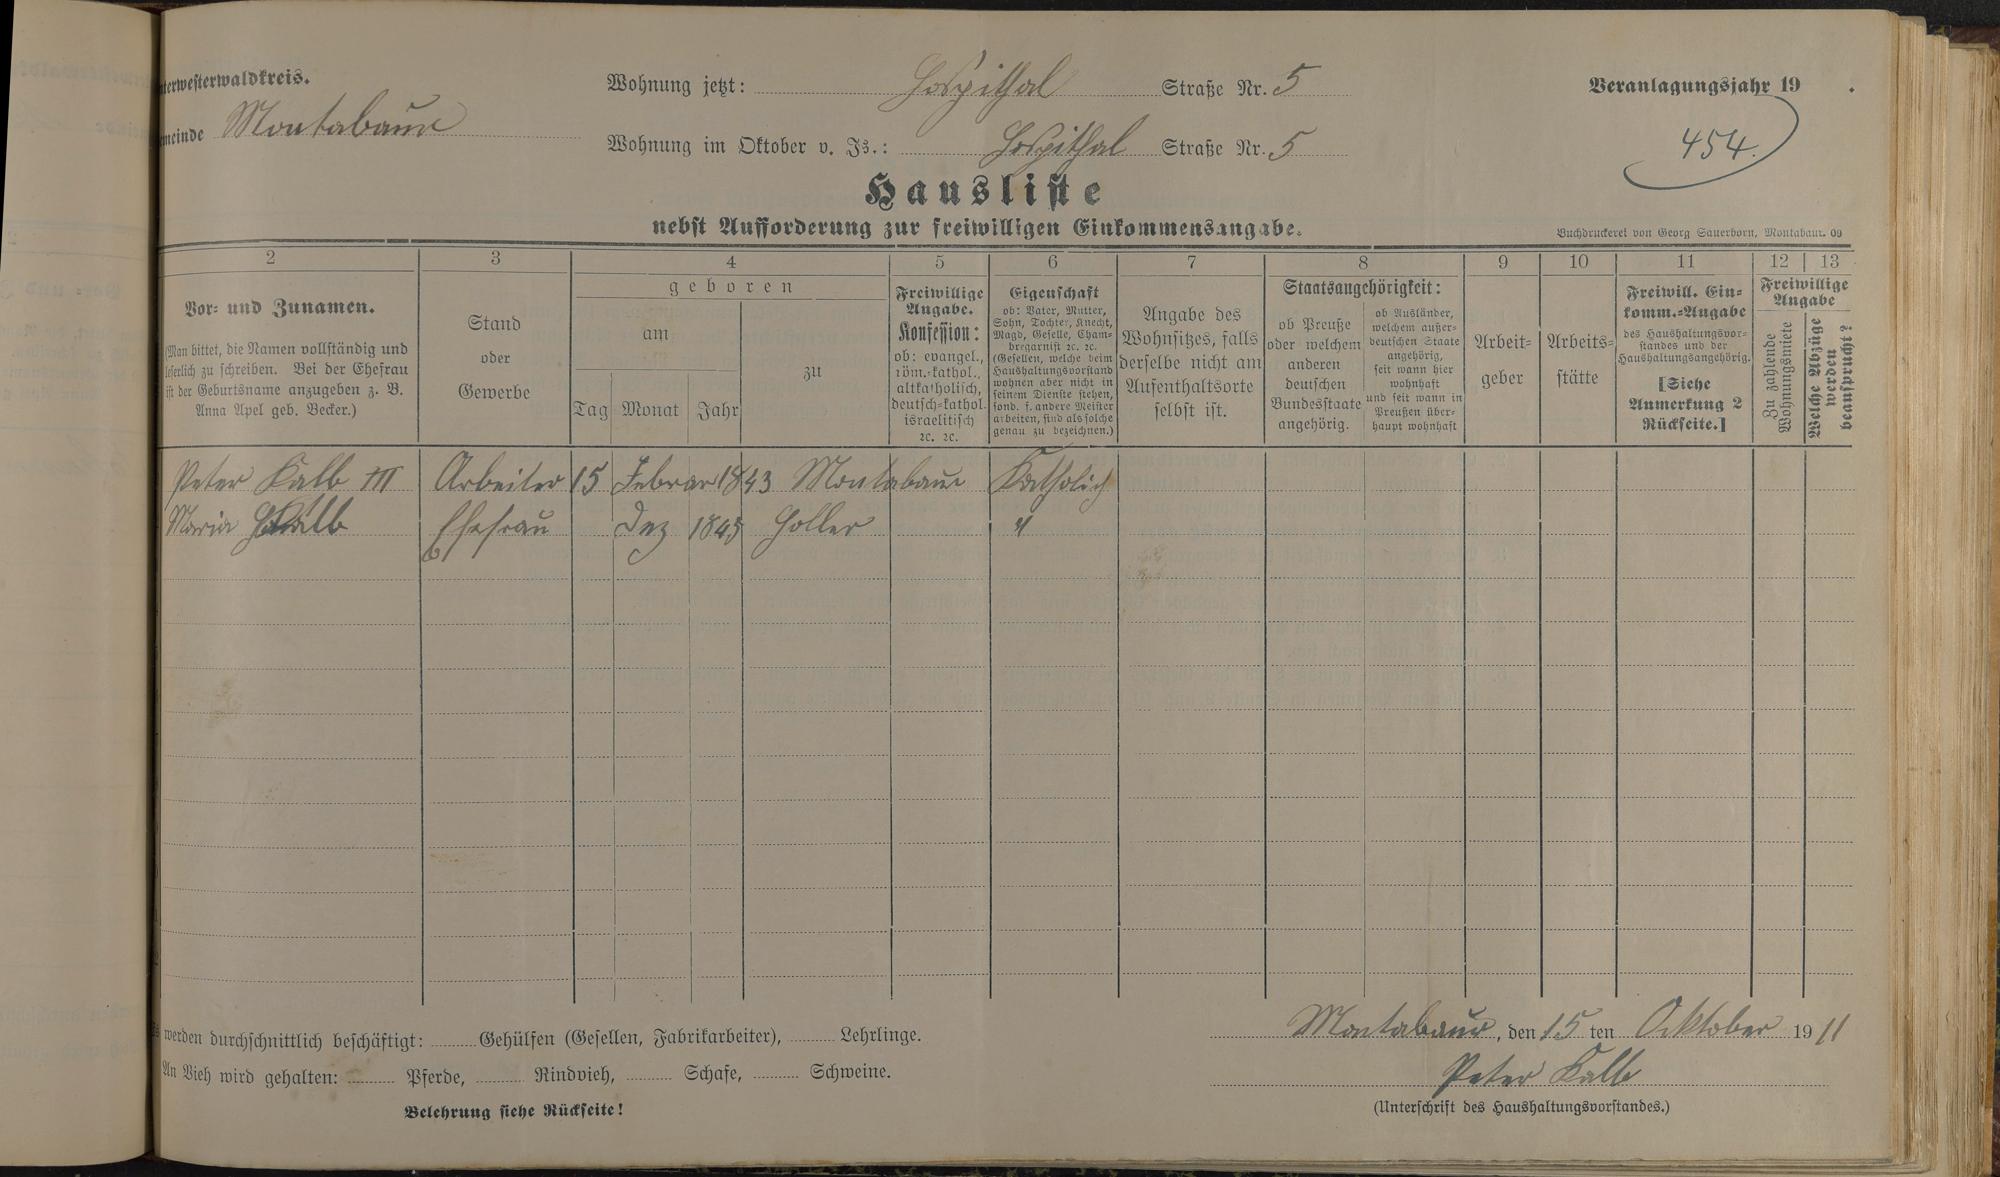 nterwesterwaldkreis.
Wohnung jetzt: Hospithal Straße Nr. 5
Veranlagungsjahr 19 .
meinde Montabaur
Wohnung im Oktober v. Js.: Hospithal Straße Nr. 5
454.
Hausliste
nebst Aufforderung zur freiwilligen Einkommensangabe.
Buchdruckerei von Georg Sauerborn, Montabaur. 09
2 3 4 5 6 7 8 9 10 11 12 13
Vor- und Zunamen.
(Man bittet, die Namen vollständig und
leserlich zu schreiben. Bei der Ehefrau
ist der Geburtsname anzugeben z. B.
Anna Apel geb. Becker.)
Stand
oder
Gewerbe
geboren
am
zu
Tag Monat Jahr
Freiwillige
Angabe.
Konfession:
ob: evangel.,
röm.-kathol.,
altkatholisch,
deutsch-kathol.
israelitisch
ꝛc. ꝛc.
Eigenschaft
ob: Vater, Mutter,
Sohn, Tochter, Knecht,
Magd, Geselle, Cham-
bregarnist ꝛc. ꝛc.
(Gesellen, welche beim
Haushaltungsvorstand
wohnen aber nicht in
seinem Dienste stehen,
sond. f. andere Meister
arbeiten, sind als solche
genau zu bezeichnen.)
Angabe des
Wohnsitzes, falls
derselbe nicht am
Aufenthaltsorte
selbst ist.
Staatsangehörigkeit:
ob Preuße
oder welchem
anderen
deutschen
Bundesstaate
angehörig.
ob Ausländer,
welchem außer-
deutschen Staate
angehörig,
seit wann hier
wohnhaft
und seit wann in
Preußen über-
haupt wohnhaft
Arbeit-
geber
Arbeits-
stätte
Freiwill. Ein-
komm.-Angabe
des Haushaltungsvor-
standes und der
Haushaltungsangehörig.
[Siehe
Anmerkung 2
Rückseite.]
Freiwillige
Angabe
Zu zahlende
Wohnungsmiete
Welche Abzüge
werden
beansprucht?
Peter Kalb III Arbeiter 15 Februar 1843 Montabaur Katholich
Maria Kalb Ehefrau Dez 1845 Holler "
werden durchschnittlich beschäftigt: Gehülfen (Gesellen, Fabrikarbeiter), Lehrlinge.
Montabaur, den 15 ten Ocktober 19 11
An Vieh wird gehalten: Pferde, Rindvieh, Schafe, Schweine.
Peter Kalb
Belehrung siehe Rückseite!
(Unterschrift des Haushaltungsvorstandes.)